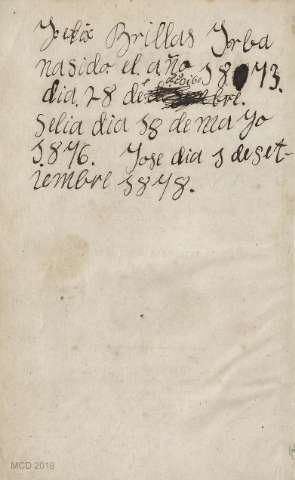 Felix Brillas Yorba
nasido. el. año 18 73.
dia. 28 de
Selia dia 18 de mayo
1.876. Jose dia 1 de set-
iembre 1878.
MCD 2018